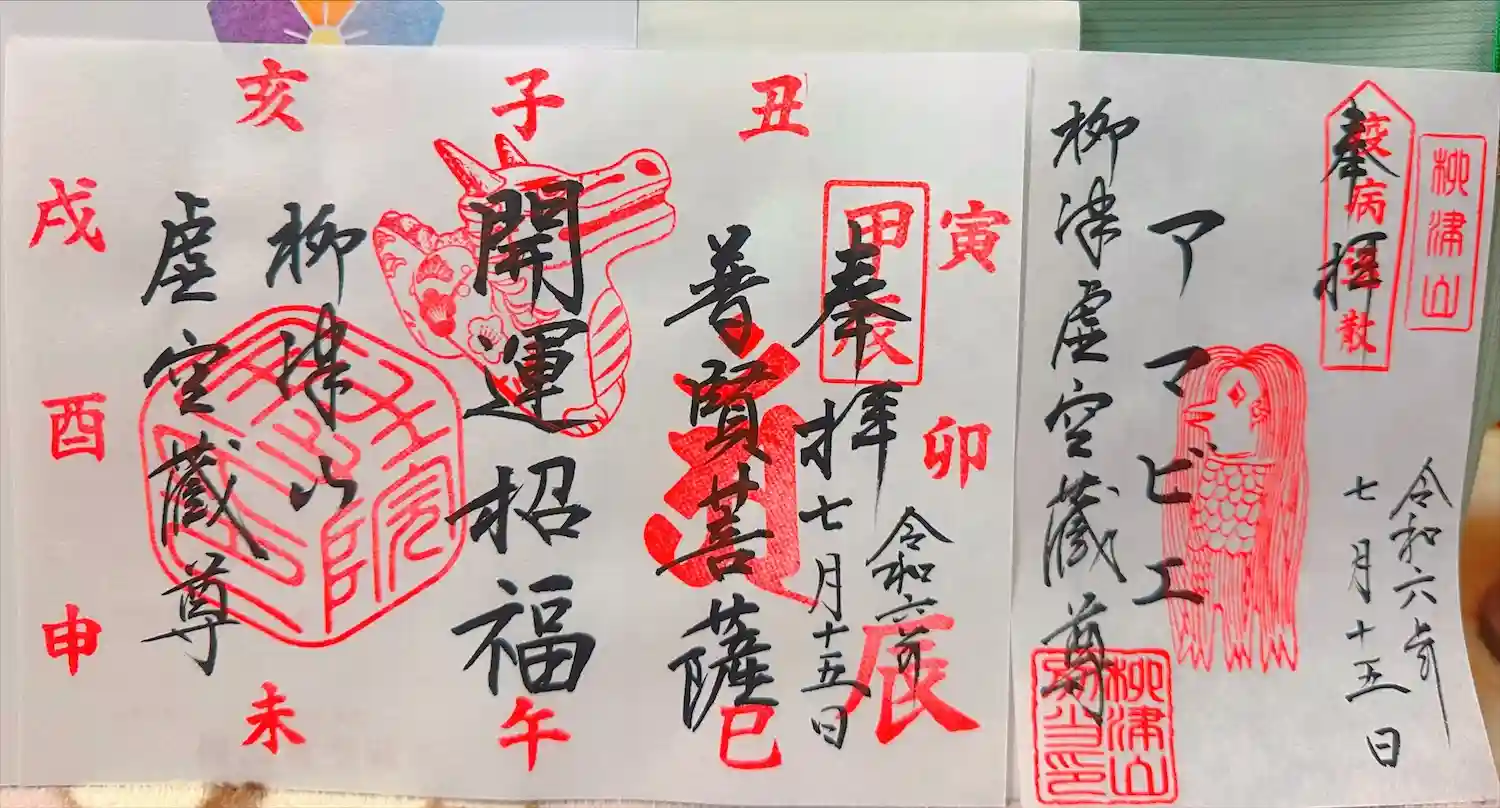 柳津山
疫病
散
奉拝
令和六年
七月十五日
アマビエ
柳津虚空蔵尊
柳津山
子
丑
寅
卯
辰
巳
午
未
申
酉
戌
亥
甲辰
奉拝
令和六年
七月十五日
普賢菩薩
開運招福
柳津山
虚空蔵尊